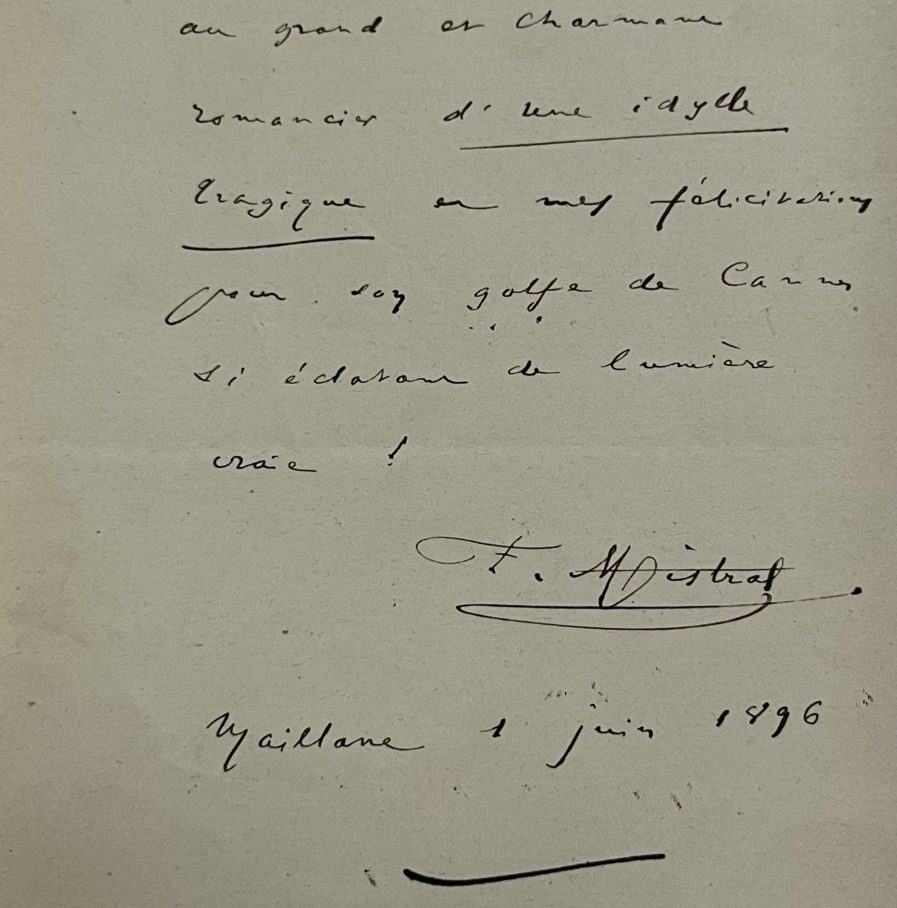 au grand et charmant
romancier d'une idylle
tragique et mes félicitations
pour son golfe de Cannes
si éclatant de lumière
vraie !
F. Mistral
Maillane 1 juin 1896